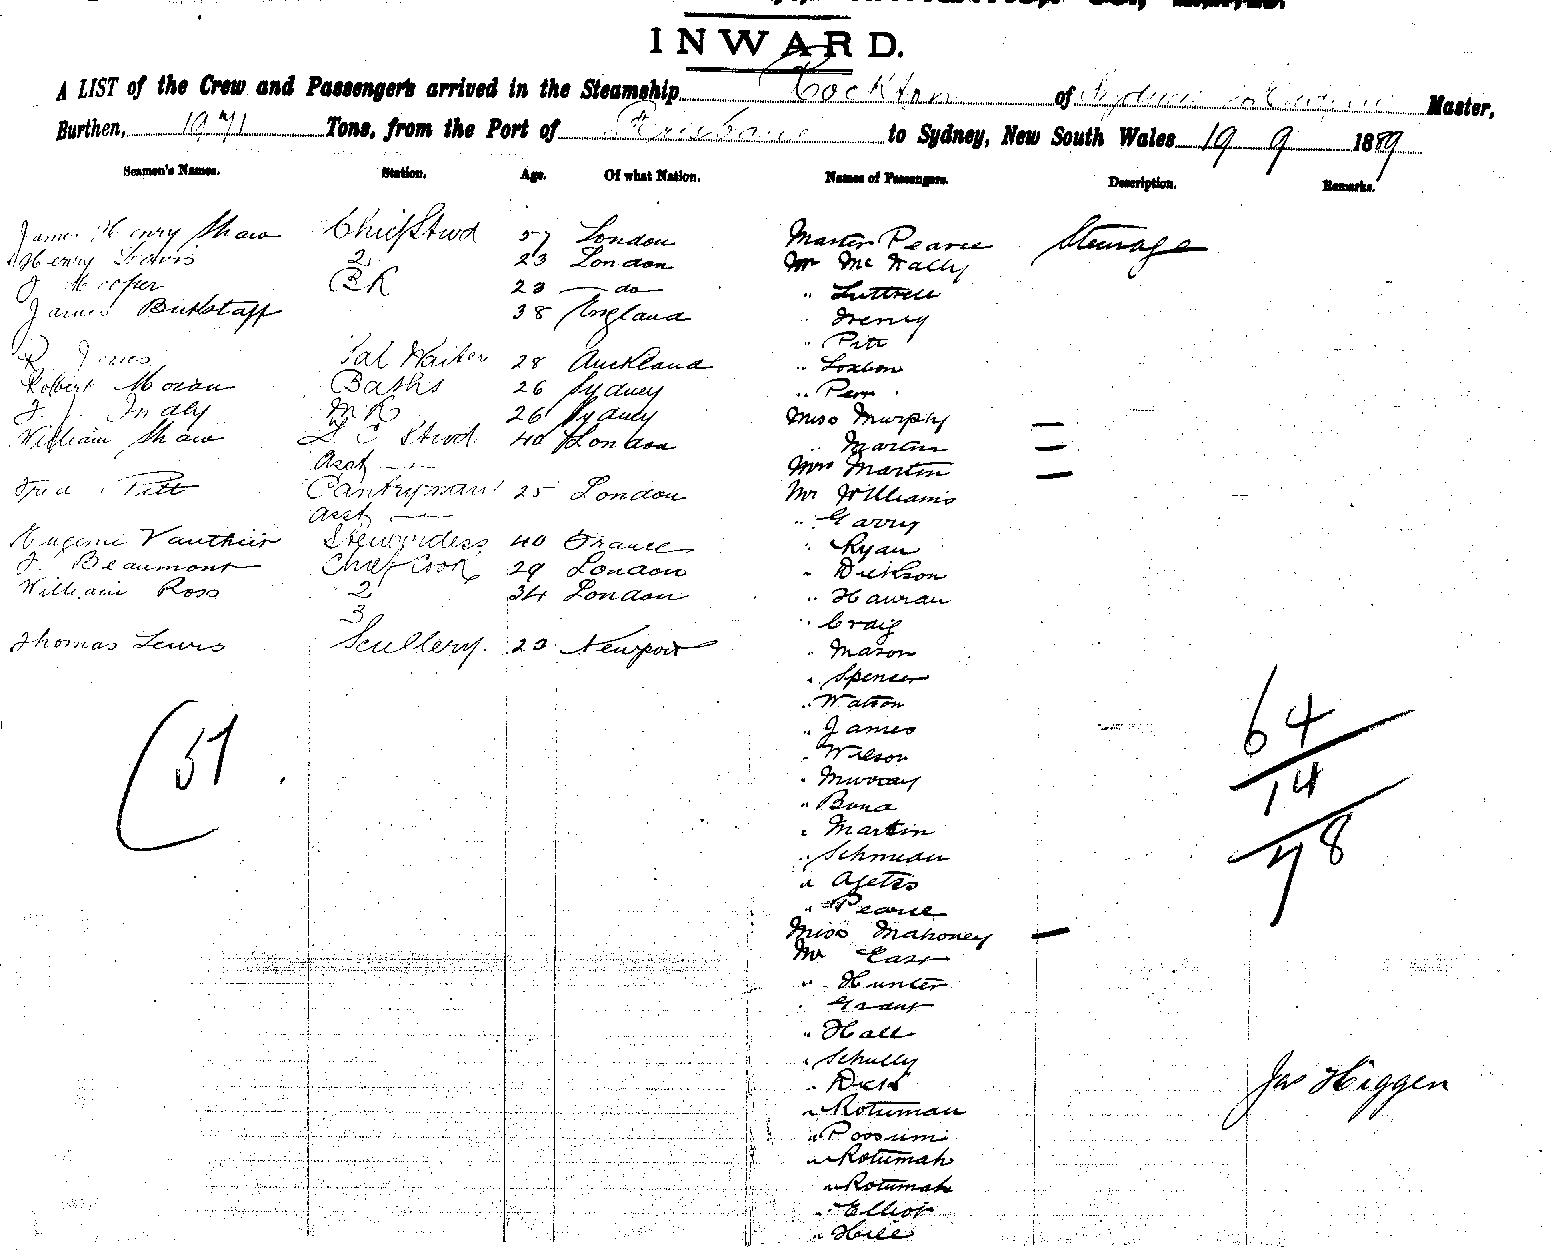 INWARD.
A LIST of the Crew and Passengers arrived in the Steamship Rockton of Sydney Master,
Burthen, 1971 Tons, from the Port of Brisbane to Sydney, New South Wales 19 9 1889
Seamen's Names. Station. Age. Of what Nation. Names of Passengers. Description. Remarks.
James Henry Shaw Chief Stwd 57 London Master Pearce Steerage
Henry Davis 2 23 London Mr Mc Nally
J Hooper BK 23 — do " Luttrell
James Bickstaff 38 England " Henry
" Pitt
R Jones Sal Waiter 28 Auckland " Loxton
Robert Moran Baths 26 Sydney " Perm
J. J. Indly M R 26 Sydney Miss Murphy —
William Shaw S C Stwd 40 London " Martin —
Asst — Mrs Martin —
Fred Pitt Pantryman 25 London Mr Williams
Asst — " Garry
Eugenie Vauthier Stewardess 40 France " Ryan
J. Beaumont Chief Cook 29 London " Dickson
William Ross 2 34 London " Hanran
3 " Craig
Thomas Lewis Scullery 23 Newport " Mason
" Spencer
" Watson
" James
" Wilson
" Murray
" Bond
" Martin
" 
" 
" Pearce
Miss Mahoney —
Mr East
" Hunter
" Grant
" Hall
" Schully
" Dick
" Rotumau
" Possumi
" Rotumah
" Rotumah
" Elliot
" Hill
(51
64
14
78
Jas Higgen